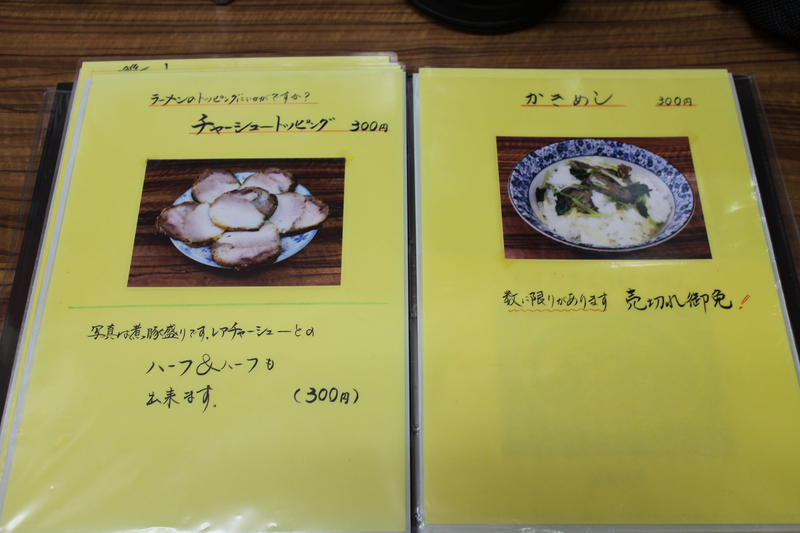 ラーメンのトッピングにいかがですか?
チャーシュートッピング 300円
写真は煮豚盛りです、レアチャーシューとの
ハーフ&ハーフも
出来ます。 (300円)
かきめし 300円
数に限りがあります 売切れ御免!